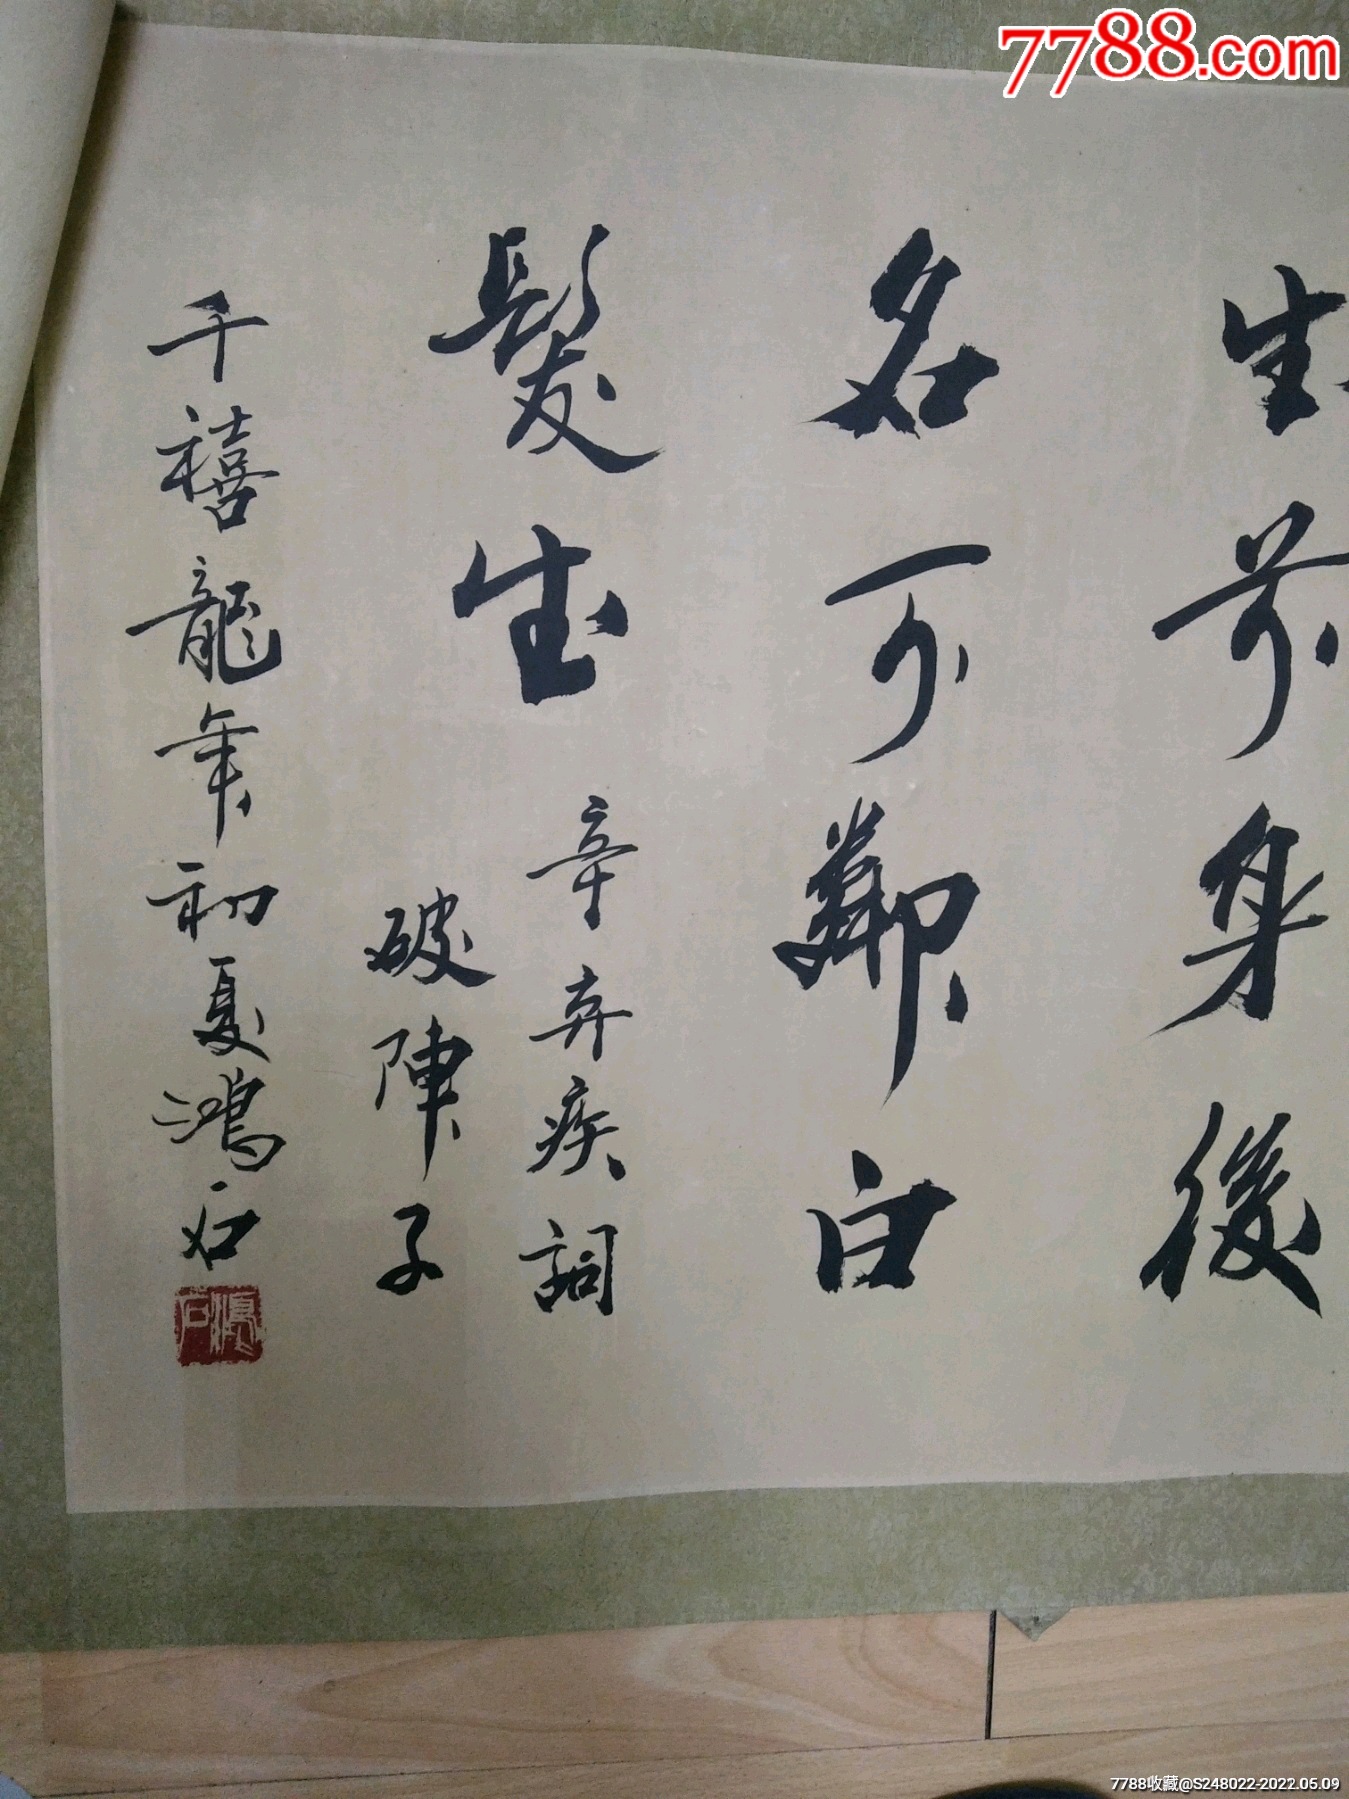 7788.com
生前身後
名可鄰白
髮生
辛弃疾詞
破陣子
千禧龍年初夏鴻石
鴻石
7788收藏@S248022-2022.05.09